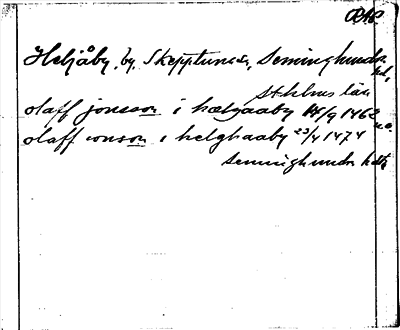 Heljåby, by, Skepptuna sn, Seminghundra hd,
Sthlms län
olaff jonsson i hælgaaby 14/9 1462
olaff ionson i helghaaby 23/4 1474
Seminghundra hdr